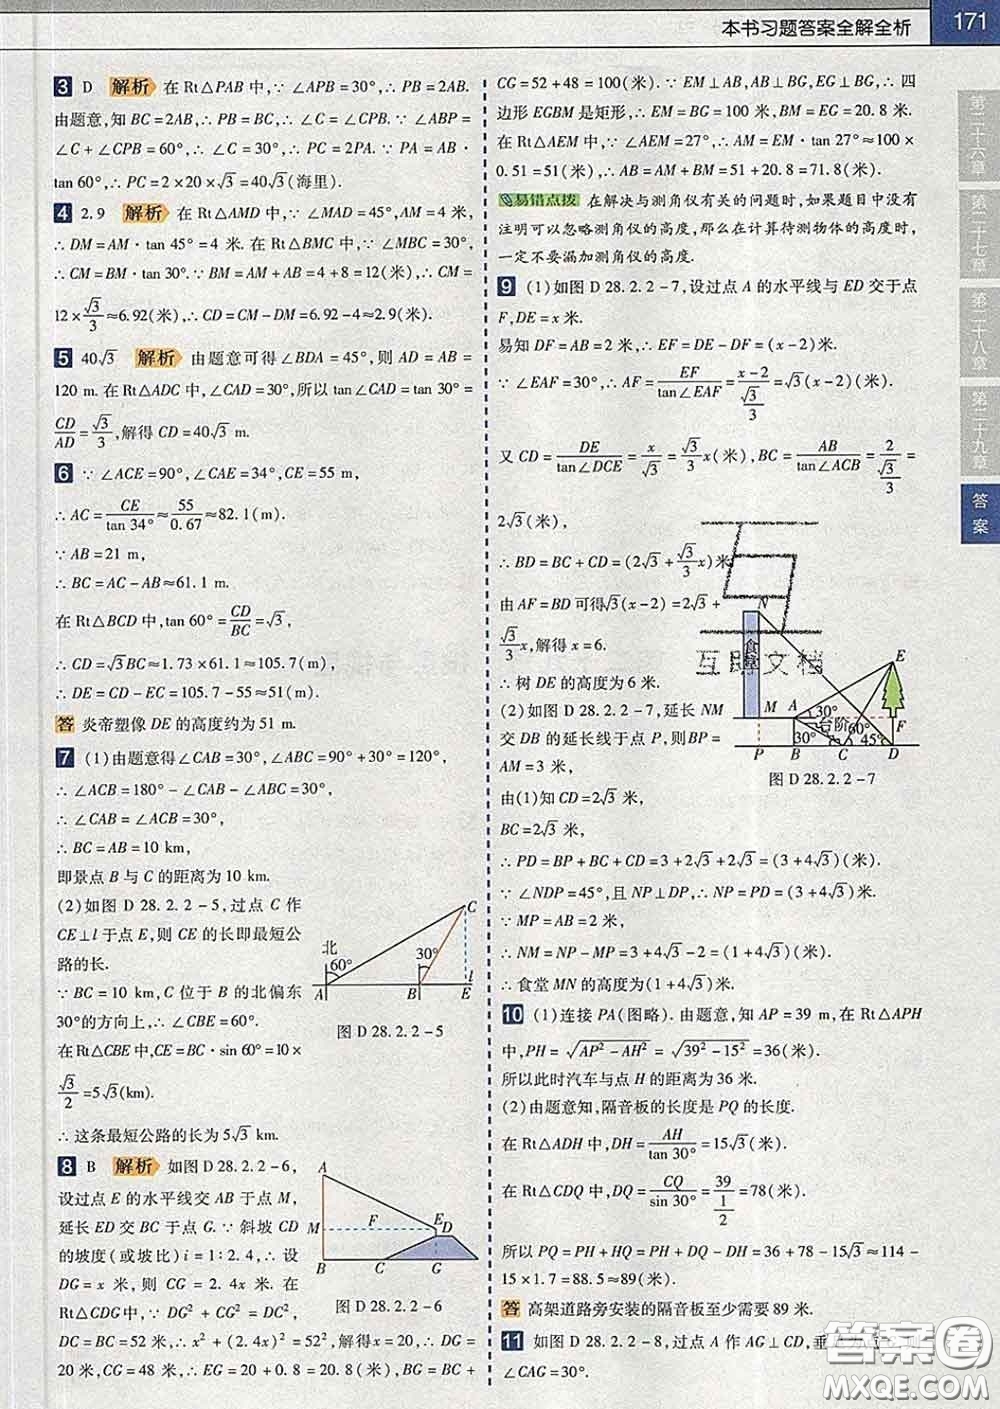 本书习题答案全解全析 171
3 D 解析 在 Rt△PAB 中,∵ ∠APB=30°,∴ PB=2AB.
由题意,知 BC=2AB,∴ PB=BC,∴ ∠C=∠CPB. ∵ ∠ABP=
∠C+∠CPB=60°,∴ ∠C=30°,∴ PC=2PA. ∵ PA=AB·
tan 60°,∴ PC=2×20×√3=40√3(海里).
4 2.9 解析 在 Rt△AMD 中,∵ ∠MAD=45°,AM=4 米,
∴ DM=AM·tan 45°=4 米. 在 Rt△BMC 中,∵ ∠MBC=30°,
∴ CM=BM·tan 30°. ∵ BM=AM+AB=4+8=12(米),∴ CM=
12×√3/3≈6.92(米),∴ CD=CM-DM=6.92-4≈2.9(米).
5 40√3 解析 由题意可得∠BDA=45°,则 AD=AB=
120 m. 在 Rt△ADC 中,∠CAD=30°,所以 tan∠CAD=tan 30°=
CD/AD=√3/3,解得 CD=40√3 m.
6 ∵ ∠ACE=90°,∠CAE=34°,CE=55 m,
∴ AC=CE/tan 34°≈55/0.67≈82.1(m).
∵ AB=21 m,
∴ BC=AC-AB≈61.1(m).
在 Rt△BCD 中,tan 60°=CD/BC=√3,
∴ CD=√3BC≈1.73×61.1≈105.7(m).
∴ DE=CD-EC=105.7-55≈51(m).
答 炎帝塑像 DE 的高度约为 51 m.
7 (1)由题意得∠CAB=30°,∠ABC=90°+30°=120°,
∴ ∠ACB=180°-∠CAB-∠ABC=30°,
∴ ∠CAB=∠ACB=30°,
∴ BC=AB=10 km,
即景点 B 与 C 的距离为 10 km.
(2)如图 D 28.2.2-5,过点 C 作
CE⊥l 于点 E,则 CE 的长即最短公
路的长.
∵ BC=10 km,C 位于 B 的北偏东
30°的方向上,∴ ∠CBE=60°.
在 Rt△CBE 中,CE=BC·sin 60°=10×
√3/2=5√3(km).
∴ 这条最短公路的长为 5√3 km.
北 60° 30° A B C E l
图 D 28.2.2-5
8 B 解析 如图 D 28.2.2-6,
设过点 E 的水平线交 AB 于点 M,
延长 ED 交 BC 于点 G. ∵ 斜坡 CD
的坡度(或坡比)i=1:2.4,∴ 设
DG=x 米,则 CG=2.4x 米. 在
Rt△CDG 中,∵ DG²+CG²=DC²,
DC=BC=52 米,∴ x²+(2.4x)²=52²,解得 x=20,∴ DG=
20 米,CG=48 米,∴ EG=20+0.8=20.8(米),BG=BC+
A M F E D B C G
图 D 28.2.2-6
CG=52+48=100(米). ∵ EM⊥AB,AB⊥BG,EG⊥BG,∴ 四
边形 EGBM 是矩形,∴ EM=BG=100 米,BM=EG=20.8 米.
在 Rt△AEM 中,∵ ∠AEM=27°,∴ AM=EM·tan 27°≈100×
0.51=51(米),∴ AB=AM+BM=51+20.8=71.8(米).
易错点拨 在解决与测角仪有关的问题时,如果题目中没有
注明可以忽略测角仪的高度,那么在计算待测物体的高度时,
一定不要漏加测角仪的高度.
9 (1)如图 D 28.2.2-7,设过点 A 的水平线与 ED 交于点
F,DE=x 米.
易知 DF=AB=2 米,∴ EF=DE-DF=(x-2)米.
∵ ∠EAF=30°,∴ AF=EF/tan∠EAF=(x-2)/(√3/3)=√3(x-2)(米).
又 CD=DE/tan∠DCE=x/√3=√3/3x(米),BC=AB/tan∠ACB=2/(√3/3)=
2√3(米),
∴ BD=BC+CD=(2√3+√3/3x)米
由 AF=BD 可得√3(x-2)=2√3+
√3/3x,解得 x=6.
∴ 树 DE 的高度为 6 米.
(2)如图 D 28.2.2-7,延长 NM
交 DB 的延长线于点 P,则 BP=
AM=3 米.
由(1)知 CD=2√3 米,
BC=2√3 米.
∴ PD=BP+BC+CD=3+2√3+2√3=(3+4√3)(米).
∵ ∠NDP=45°,且 NP⊥DP,∴ NP=PD=(3+4√3)米.
∵ MP=AB=2 米,
∴ NM=NP-MP=3+4√3-2=(1+4√3)(米).
∴ 食堂 MN 的高度为(1+4√3)米.
N 食堂 M A 30° 台阶 60° 30° 45° E F P B C D
图 D 28.2.2-7
互助文档
10 (1)连接 PA(图略). 由题意,知 AP=39 m,在 Rt△APH
中,PH=√(AP²-AH²)=√(39²-15²)=36(米).
所以此时汽车与点 H 的距离为 36 米.
(2)由题意知,隔音板的长度是 PQ 的长度.
在 Rt△ADH 中,DH=AH/tan 30°=15√3(米).
在 Rt△CDQ 中,DQ=CQ/sin 30°=39/(1/2)=78(米).
所以 PQ=PH+HQ=PH+DQ-DH=36+78-15√3≈114-
15×1.7=88.5≈89(米).
答 高架道路旁安装的隔音板至少需要 89 米.
11 如图 D 28.2.2-8,过点 A 作 AG⊥CD,垂
∠CAG=30°.
第二十六章
第二十七章
第二十八章
第二十九章
答案
答案圈
MXQE.COM